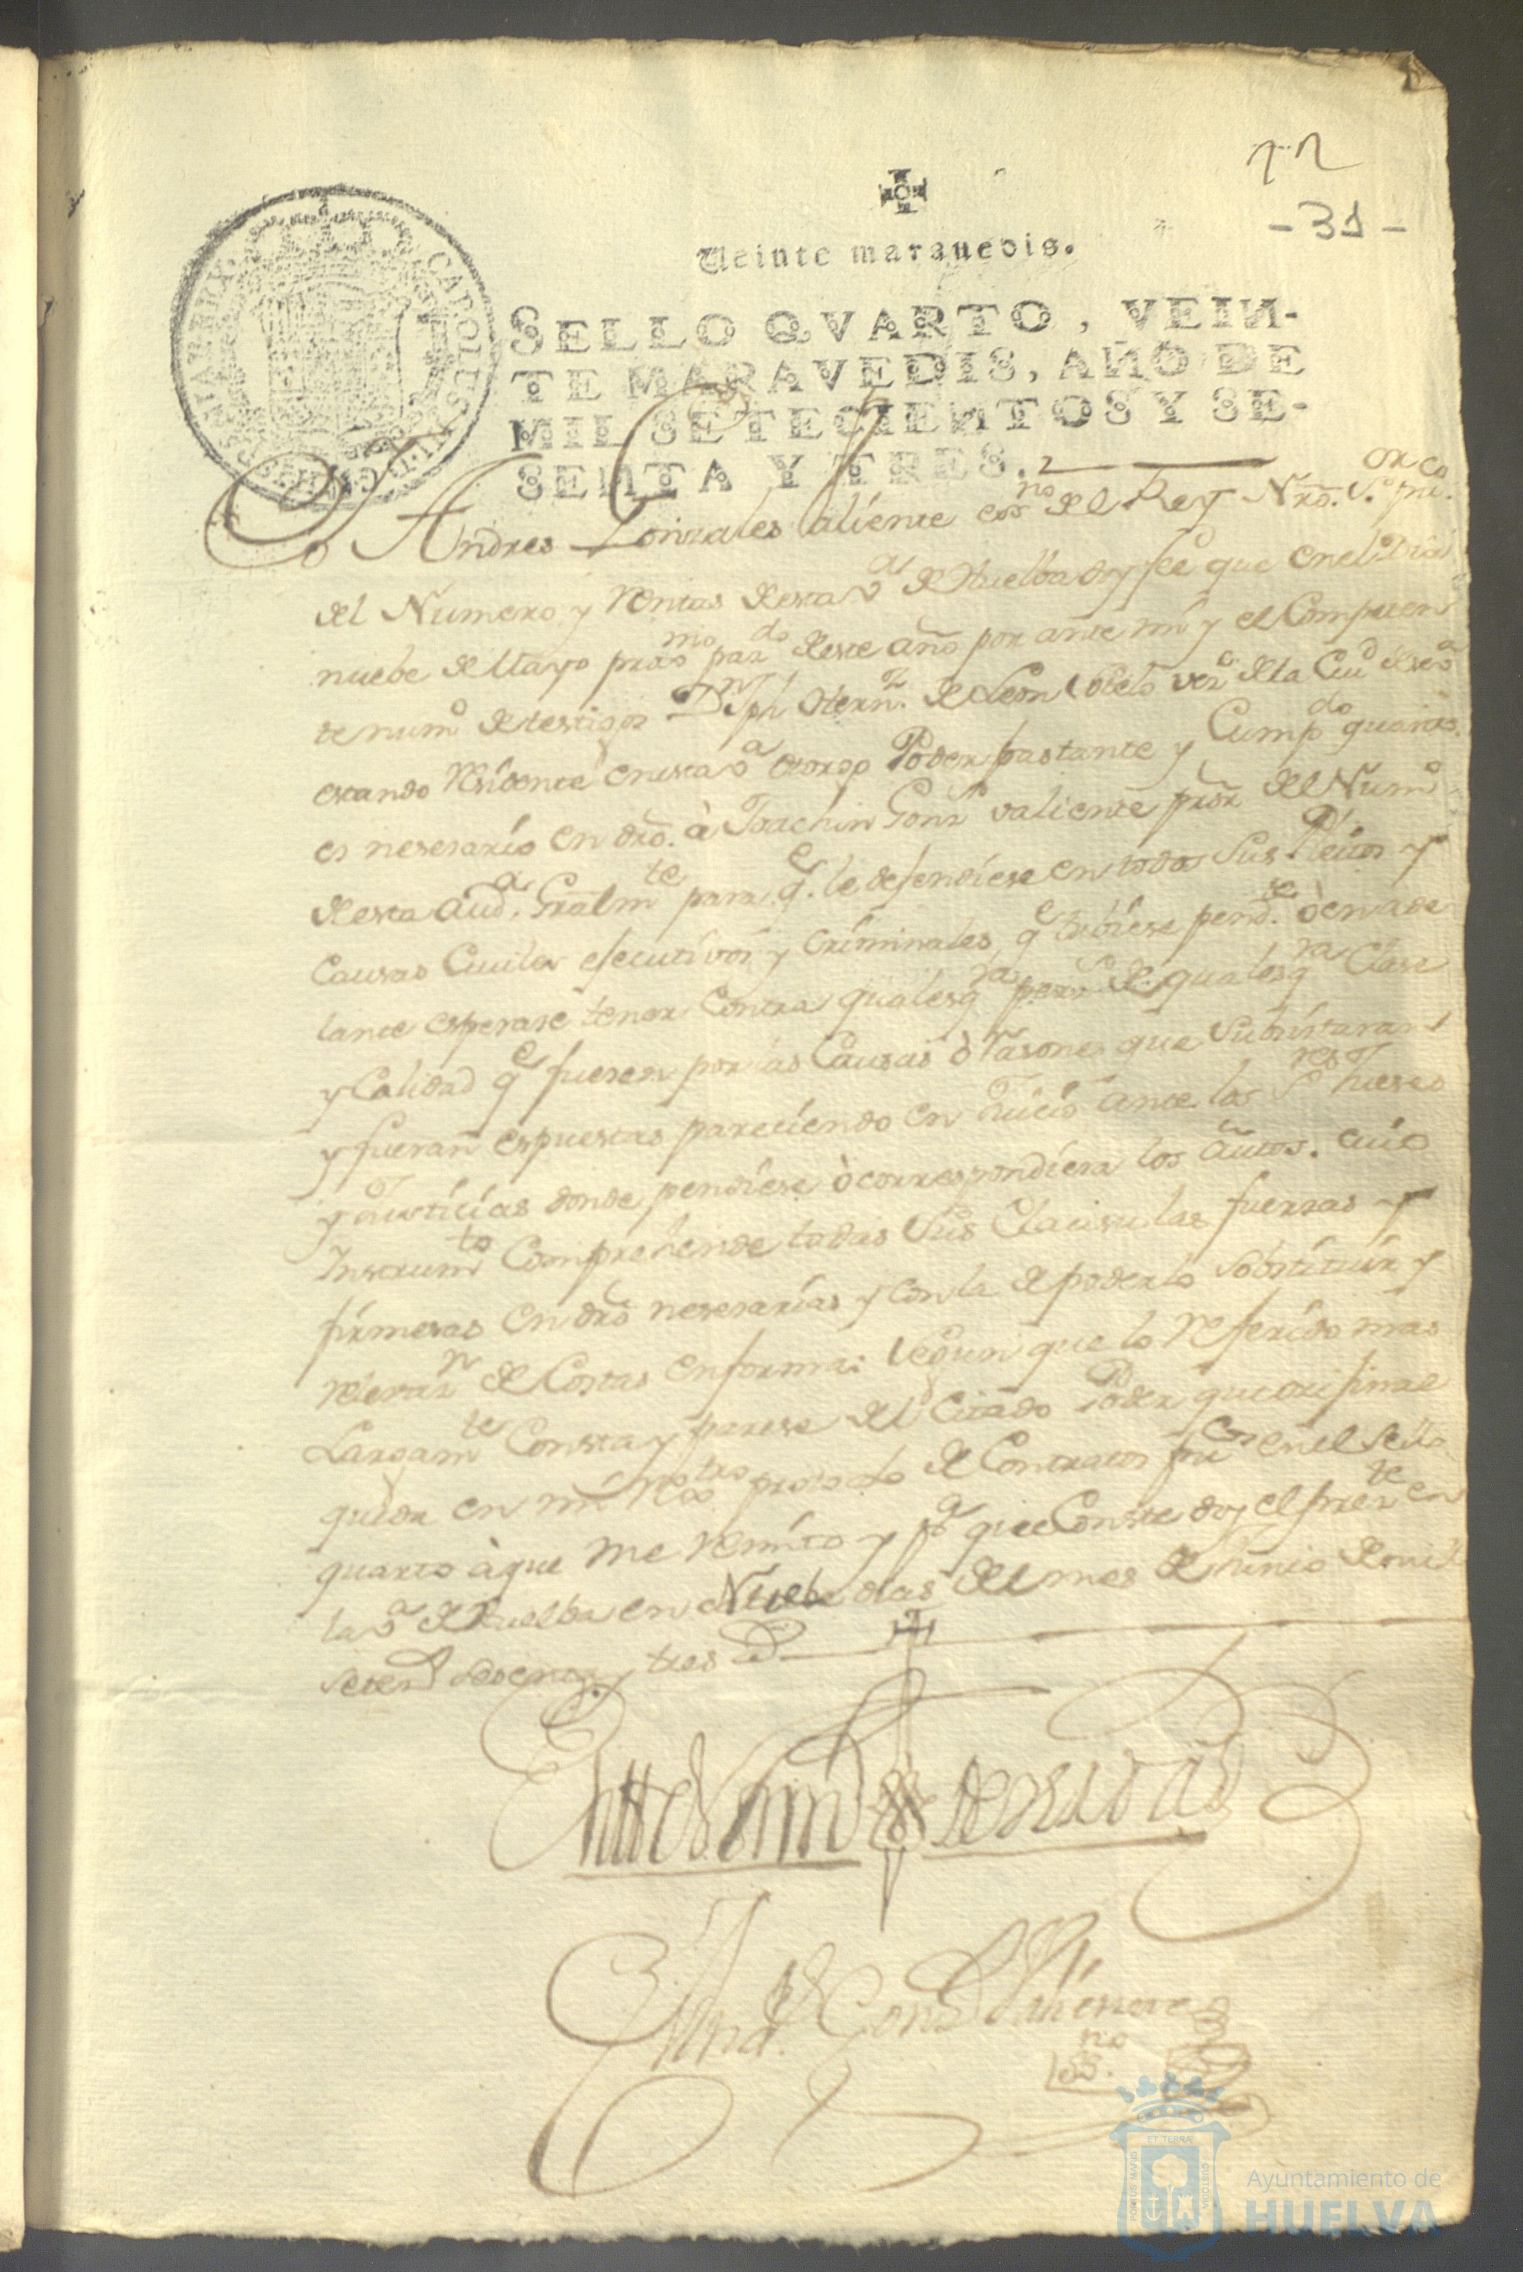 -31-
Veinte maravedis.
SELLO QVARTO, VEIN-
TE MARAVEDIS, AÑO DE
MIL SETECIENTOS Y SE-
SENTA Y TRES.
Yo Andres Gonzales Valiente esno del Rey Nro. Sor pu.co
del Numero y Rentas desta Va de Huelba doy fee que en el Dia
nuebe de Mayo proxmo pasdo deste año por ante mi y el Competen
te numo de testigos Dn Jph Hernz de Leon veco de la Ciud de Seva
estando Residente en esta Va otorgo Poder bastante y Cumpdo quanto
es nesesario en dro. à Joachin Gonz valiente pror del Numo
desta Auda. Gralmte para qe. le defendiese en todos sus Pleitos y
Causas Civiles ejecutivos y Criminales qe tubiese pendte. ò en ade
lante esperase tener contra qualesqra persos de qualesqra Clase
y Calidad qe fueren por las Causas ò rasones que Subsistaran
y fueran espuestas pareciendo en Juicio ante los Sres Jueses
y Justicias donde pendiese ò correspondiera los autos. cuio
Instrumto Comprehende todas sus Clausulas fuersas y
firmesas en dro nesesarias y con la de poderlo sobstituir y
relevasn de Costas en forma: segun que lo Referido mas
Largamte Consta y parese del Citado Poder que orijinal
queda en mi Rextro protocolo de Contratos pucos en el Sello
quarto à que me Remito y pa que Conste doy el presente en
la Va de Huelba en Nuebe dias del mes de Junio de mill
setesd sesenta y tres
En testimo de verdad
Andrs Gonz Valiente
esno.
PORTUS MARIS ET TERRÆ CUSTODIA
Ayuntamiento de
HUELVA